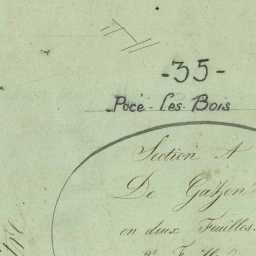 -35-
Pocé-les-Bois
Section A
De Gazon
en deux Feuilles.